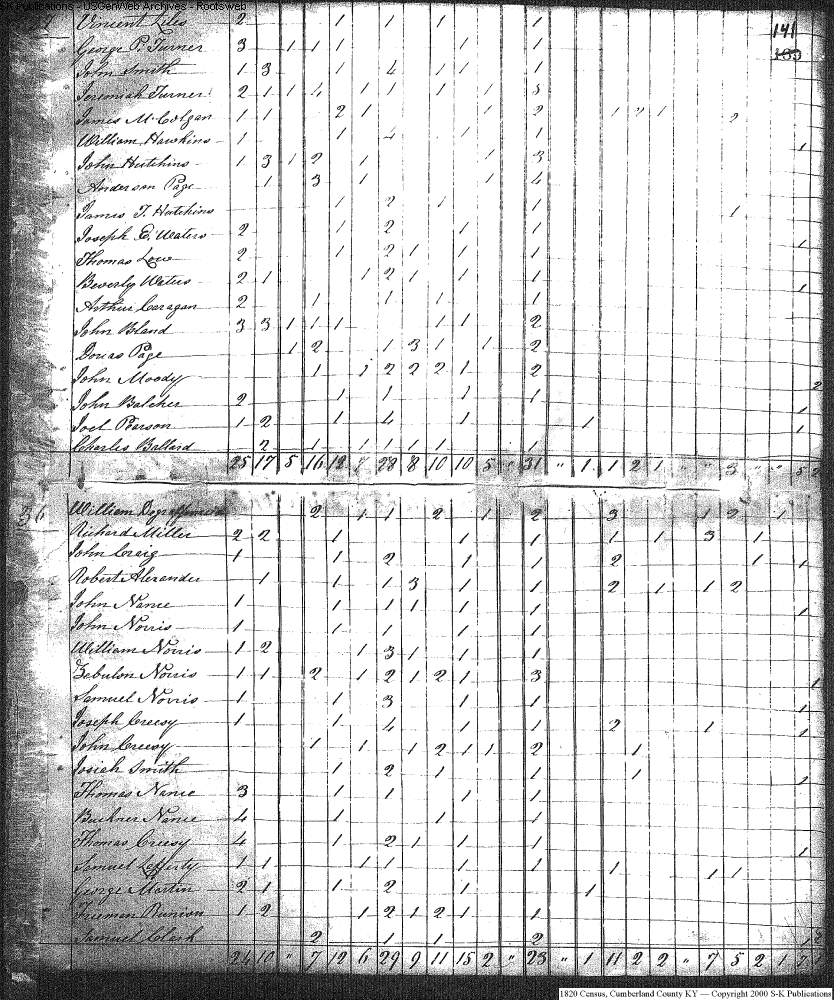 S-K Publications - USGenWeb Archives - Rootsweb
141
Vincent Liles 2 1 1 1 1
George P. Turner 3 1 1 1 1 1
John Smith 1 3 1 4 1 1 1
Jeremiah Turner 2 1 1 4 1 1 1 1
James McColgan 1 1 2 1 1 2 1 2 1 2
William Hawkins 1 1 4 1 1 1
John Hutchins 1 3 1 2 1 1 3
Anderson Page 1 3 1 1 4
James T. Hutchins 1 2 1 1 1
Joseph E. Waters 2 1 2 1 1 1
Thomas Low 2 1 2 1 1 1
Beverly Waters 2 1 1 2 1 1 1 1
Arthur Caragan 2 1 1 1 1
John Bland 3 3 1 1 1 1 1 2
Page 1 2 1 3 1 1 2
John Moody 1 1 2 2 2 1 2 2
John Balcher 2 1 1 1 1 1
Joel Pearson 1 2 1 4 1 1 1
Charles Ballard 2 1 1 1 1 1 1
25 17 5 16 12 7 28 8 10 10 5 " 31 " 1 1 2 1 " " 3 " " 5 2
36
William 2 1 1 2 1 2 3 1 2 1
Richard Miller 2 2 1 1 1 1 1 3 1
John Craig 1 1 2 1 1 2 1 1
Robert Alexander 1 1 1 3 1 1 2 1 1 2
John Nance 1 1 1 1 1 1 1
John Norris 1 1 1 1 1
William Norris 1 2 1 3 1 1 1
Zebulon Norris 1 1 2 1 2 1 2 1 3 1
Samuel Norris 1 1 3 1 1 1
Joseph Creesy 1 1 4 1 1 2 1 1
John Creesy 1 1 1 2 1 1 2 1
Josiah Smith 1 2 1 1 1
Thomas Nance 3 1 1 1 1 1
Buckner Nance 4 1 1 1 1
Thomas Creesy 4 1 2 1 1 1 1
Samuel Lefferty 1 1 1 1 1 1 1 1 1
George Martin 2 1 1 2 1 1
Freeman Runion 1 2 1 2 1 2 1 1
Samuel Clark 2 1 1 2
24 10 " 7 12 6 29 9 11 15 2 " 23 " 1 11 2 2 " 7 5 2 1 7
1820 Census, Cumberland County KY — Copyright 2000 S-K Publications